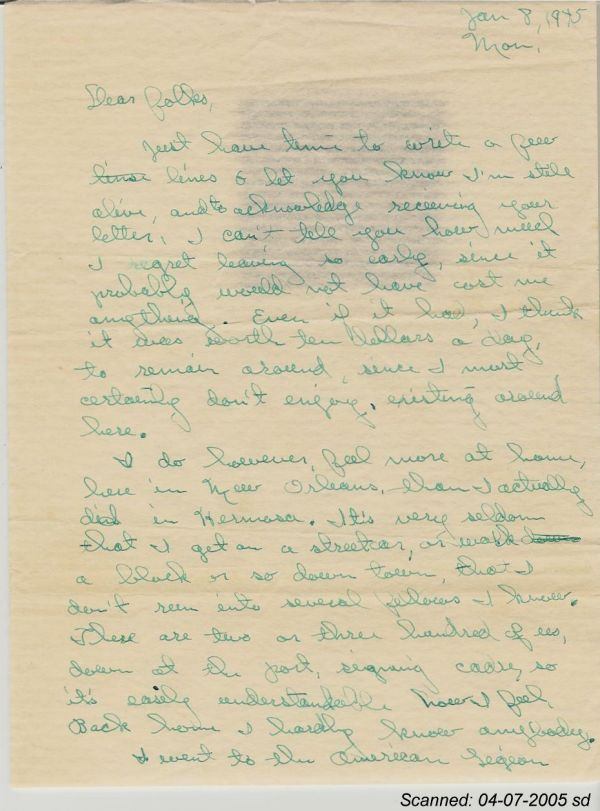 Jan 8, 1945
Mon.
Dear folks,
Just have time to write a few
lines to let you know I'm still
alive, and to acknowledge recieving your
letter. I can't tell you how much
I regret leaving so early, since it
probably would not have cost me
anything. Even if it had, I think
it was worth ten dollars a day,
to remain around, since I most
certainly don't enjoy, existing around
here.
I do however, feel more at home,
here in New Orleans, than I actually
did in Hermosa. It's very seldom
that I get on a streetcar, or walk down
a block or so down town, that I
don't run into several fellows I know.
There are two or three hundred of us,
down at the port, signing cadre, so
it's easily understandable how I feel.
Back home I hardly know anybody.
I went to the American Legion
Scanned: 04-07-2005 sd